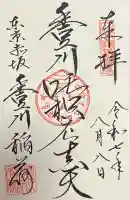 奉拝
令和七年
八月八日
豊川吒枳尼真天
東京赤坂
豊川稲荷